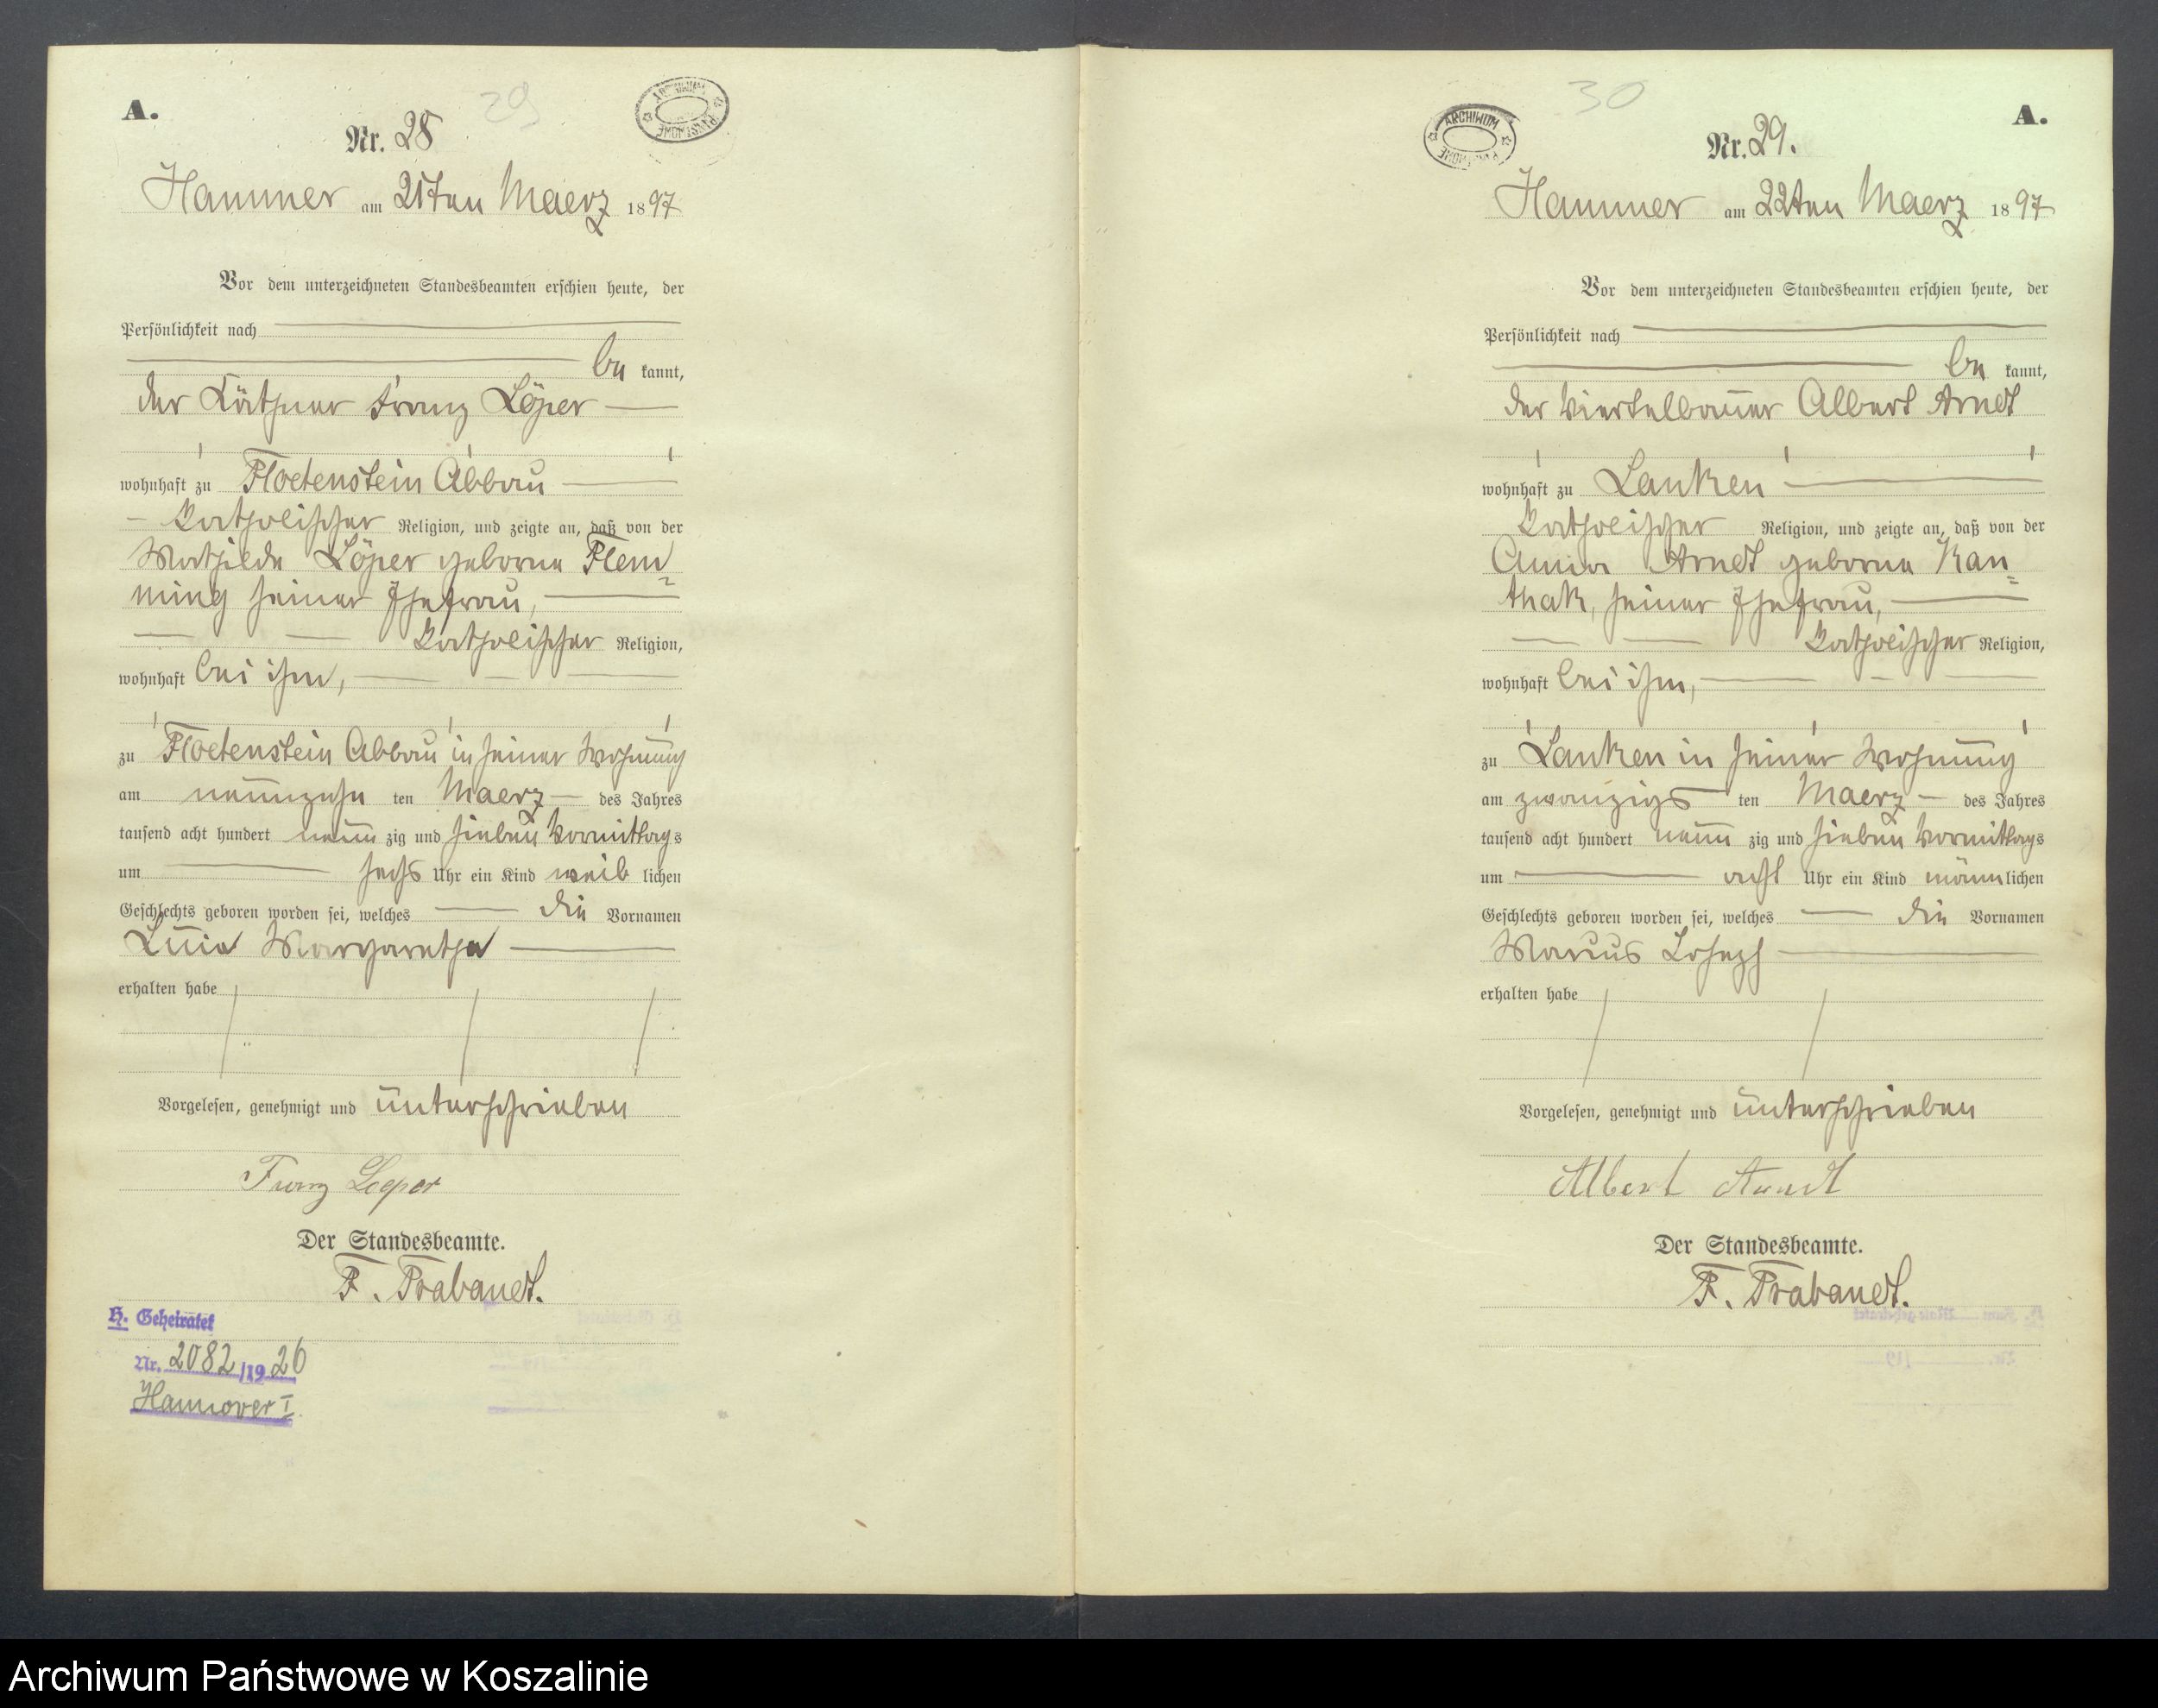 A.
29
ARCHIWUM PAŃSTWOWE
Nr. 28
Hammer am 21ten Maerz 1897
Vor dem unterzeichneten Standesbeamten erschien heute, der
Persönlichkeit nach
be kannt,
der Käthner Franz Löper
wohnhaft zu Floetenstein Abbau
katholischer Religion, und zeigte an, daß von der
Mathilde Löper geborne Flem-
ming seiner Ehefrau,
katholischer Religion,
wohnhaft bei ihm,
zu Floetenstein Abbau in seiner Wohnung
am neunzehn ten Maerz des Jahres
tausend acht hundert neun zig und sieben Vormittags
um sechs Uhr ein Kind weib lichen
Geschlechts geboren worden sei, welches die Vornamen
Margaretha
erhalten habe
Vorgelesen, genehmigt und unterschrieben
Franz Loeper
Der Standesbeamte.
F. Prabandt.
H. Geheiratet
Nr. 2082/1920
Hannover I
30
A.
ARCHIWUM PAŃSTWOWE
Nr. 29.
Hammer am 22ten Maerz 1897
Vor dem unterzeichneten Standesbeamten erschien heute, der
Persönlichkeit nach
be kannt,
der Viertelbauer Albert Arndt
wohnhaft zu Lanken
katholischer Religion, und zeigte an, daß von der
Anna Arndt geborne Kan-
thak, seiner Ehefrau,
katholischer Religion,
wohnhaft bei ihm,
zu Lanken in seiner Wohnung
am zwanzigs ten Maerz des Jahres
tausend acht hundert neun zig und sieben Vormittags
um acht Uhr ein Kind männlichen
Geschlechts geboren worden sei, welches die Vornamen
Marcus Joseph
erhalten habe
Vorgelesen, genehmigt und unterschrieben
Albert Arndt
Der Standesbeamte.
F. Prabandt.
Archiwum Państwowe w Koszalinie